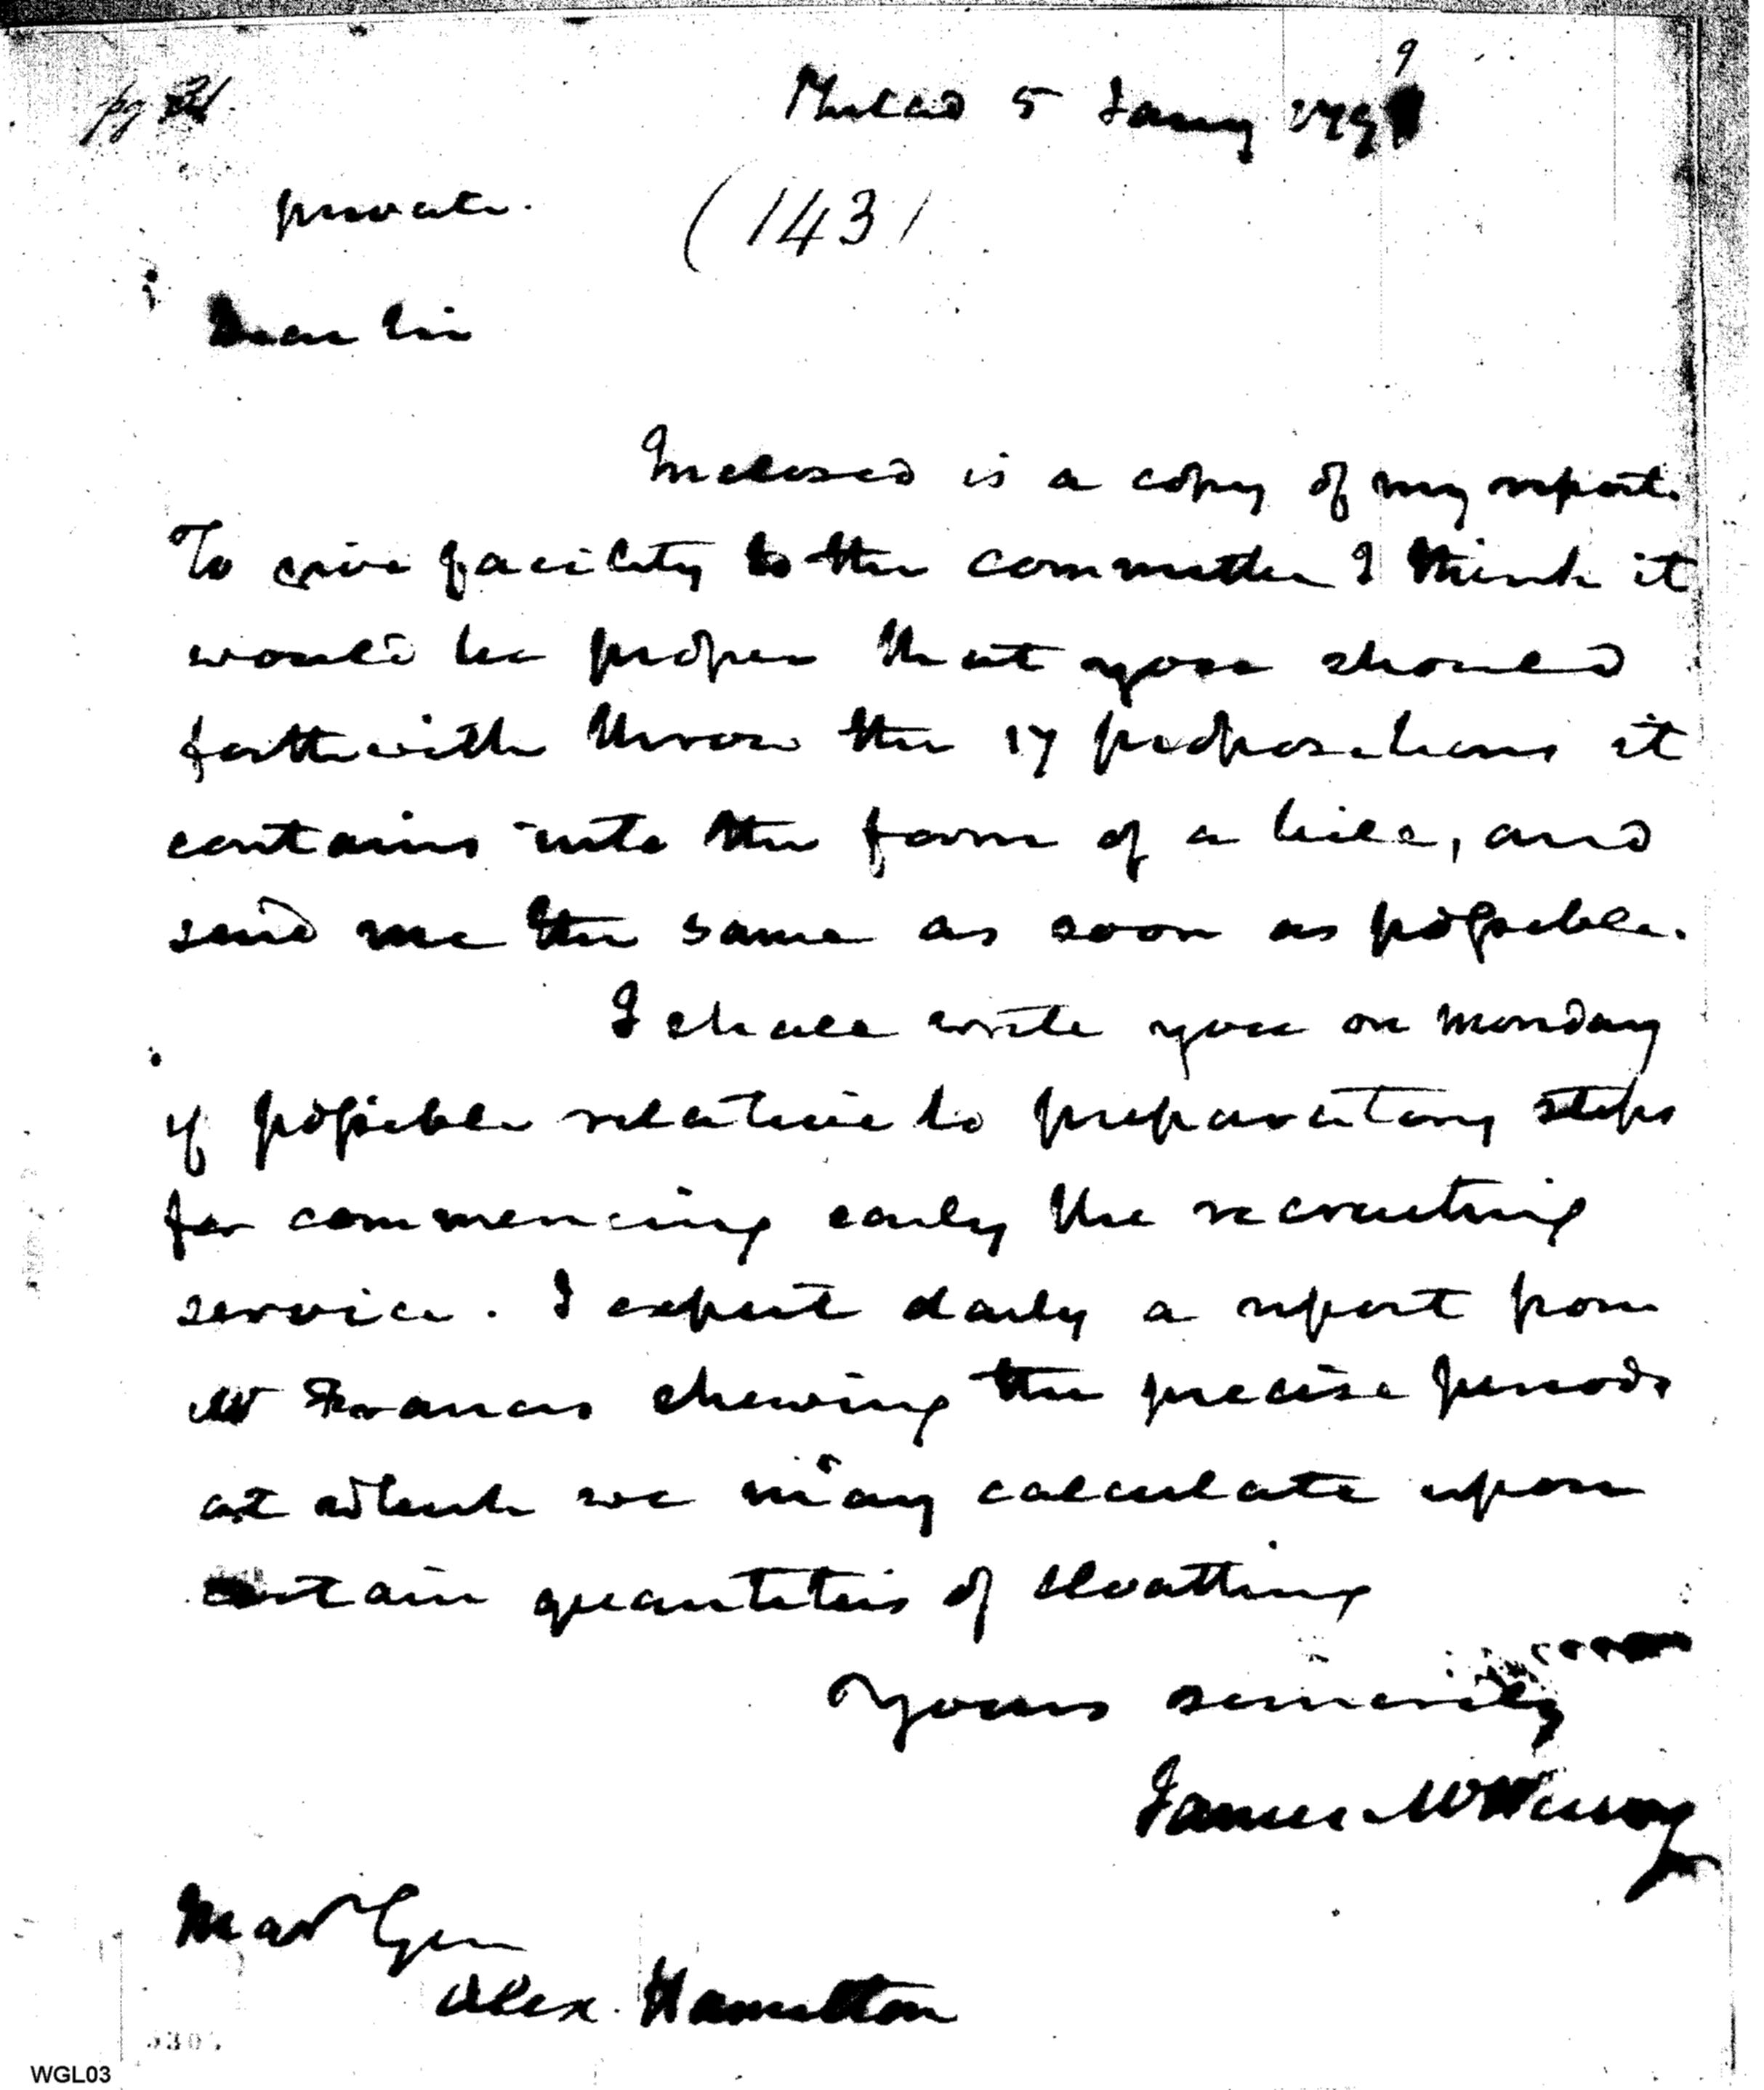 9
Philad 5 Jany 179
private.
(143)
Dear Sir
Inclosed is a copy of my report.
To give facility to the committee I think it
would be proper that you should
forthwith throw the 17 propositions it
contains into the form of a bill, and
send me the same as soon as possible.
I shall write you on monday
if possible relative to preparatory steps
for commencing early the recruiting
service. I expect daily a report from
Mr Francis shewing the precise periods
at which we may calculate upon
certain quantities of cloathing
Yours sincerely
James McHenry
Maj Gen
Alex. Hamilton
WGL03